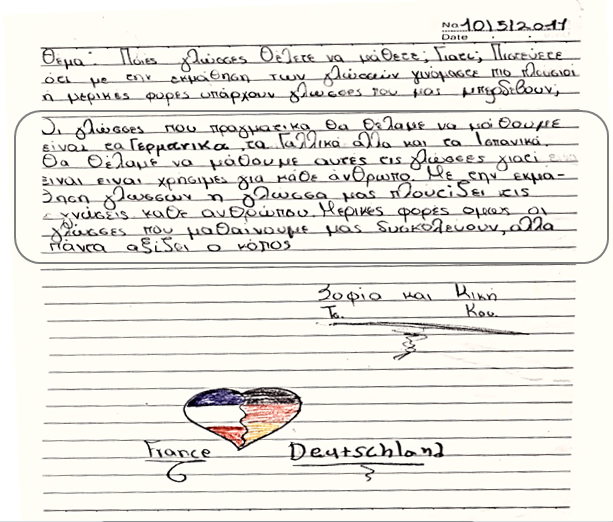 No 10/5/2011
Date
Θεμα: Ποιες γλωσσες θελετε να μαθετε; Γιατι; Πιστευετε
οτι με την εκμαθηση των γλωσσων γινομαστε πιο πλουσιοι
η μερικες φορες υπαρχουν γλωσσες που μας μπερδευουν;
Οι γλωσσες που πραγματικα θα θελαμε να μαθουμε
ειναι τα Γερμανικα, τα Γαλλικα αλλα και τα Ισπανικα.
Θα θελαμε να μαθουμε αυτες τις γλωσσες γιατι
ειναι ειναι χρησιμες για καθε ανθρωπο. Με την εκμα-
θηση γλωσσων η γλωσσα μας πλουτιζει τις
γνωσεις καθε ανθρωπου. Μερικες φορες ομως οι
γλωσσες που μαθαινουμε μας δυσκολευουν, αλλα
παντα αξιζει ο κοπος
Σοφια και Κικη
Το. Κου.
France Deutschland